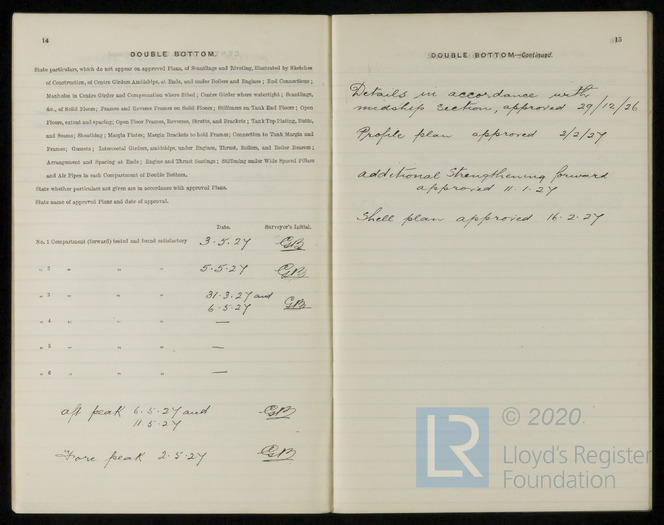 14
DOUBLE BOTTOM.
State particulars, which do not appear on approved Plans, of Scantlings and Riveting, illustrated by Sketches
of Construction, of Centre Girders Amidships, at Ends, and under Boilers and Engines; End Connections;
Manholes in Centre Girder and Compensation where fitted; Centre Girder where watertight; Scantlings,
&c., of Solid Floors; Frames and Reverse Frames on Solid Floors; Stiffeners on Tank End Floors; Open
Floors, extent and spacing; Open Floor Frames, Reverses, Struts, and Brackets; Tank Top Plating, Butts,
and Seams; Sheathing; Margin Plates; Margin Brackets to hold Frames; Connection to Tank Margin and
Frames; Gussets; Intercostal Girders, amidships, under Engines, Thrust, Boilers, and Boiler Bearers;
Arrangement and Spacing at Ends; Engine and Thrust Seatings; Stiffening under Wide Spaced Pillars
and Air Pipes in each Compartment of Double Bottom.
State whether particulars not given are in accordance with approved Plans.
State name of approved Plans and date of approval.
Date. Surveyor's Initial.
No. 1 Compartment (forward) tested and found satisfactory 3.5.27 GB
„ 2 „ „ „ 5.5.27 GB
„ 3 „ „ „ 31.3.27 and
6.5.27 GB
„ 4 „ „ „ —
„ 5 „ „ „ —
„ 6 „ „ „ —
aft peak 6.5.27 and GB
11.5.27
Fore peak 2.5.27 GB
15
DOUBLE BOTTOM—Continued.
Details in accordance with
midship section, approved 29/12/26
Profile plan approved 2/2/27
additional Strengthening forward
approved 11.1.27
Shell plan approved 16.2.27
© 2020.
LR
Lloyd's Register
Foundation